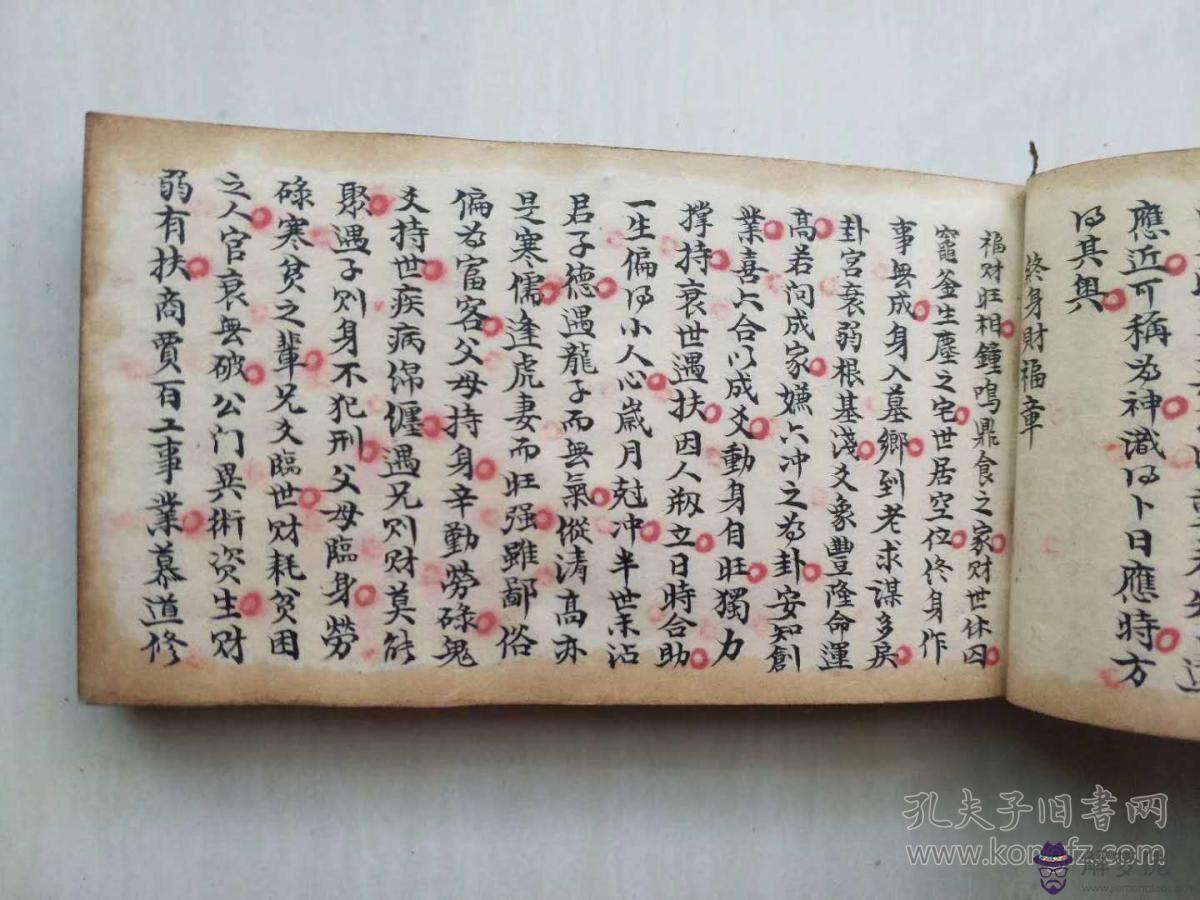 應近可稱为神識得卜日應時方
得其輿
終身財福章
福财旺相鐘鳴鼎食之家财世休囚
竈釜生塵之宅世居空位终身作
事無成身入墓鄉到老求谋多戾
卦宮衰弱根基淺爻象豐隆命運
高若问成家嫌六冲之为卦安知創
業喜六合以成爻動身自旺獨力
撑持衰世遇扶因人剏立日時合助
一生偏得小人心歲月尅冲半世未沾
君子德遇龍子而無氣縱清高亦
是寒儒逢虎妻而旺强雖鄙俗
偏为富客父母持身辛勤勞碌鬼
爻持世疾病绵纏遇兄则财莫能
聚遇子则身不犯刑父母臨身勞
碌寒贫之輩兄爻臨世财耗贫困
之人官衰無破公门異術资生财
弱有扶商賈百工事業慕道修
孔夫子旧书网
www.kongfz.com